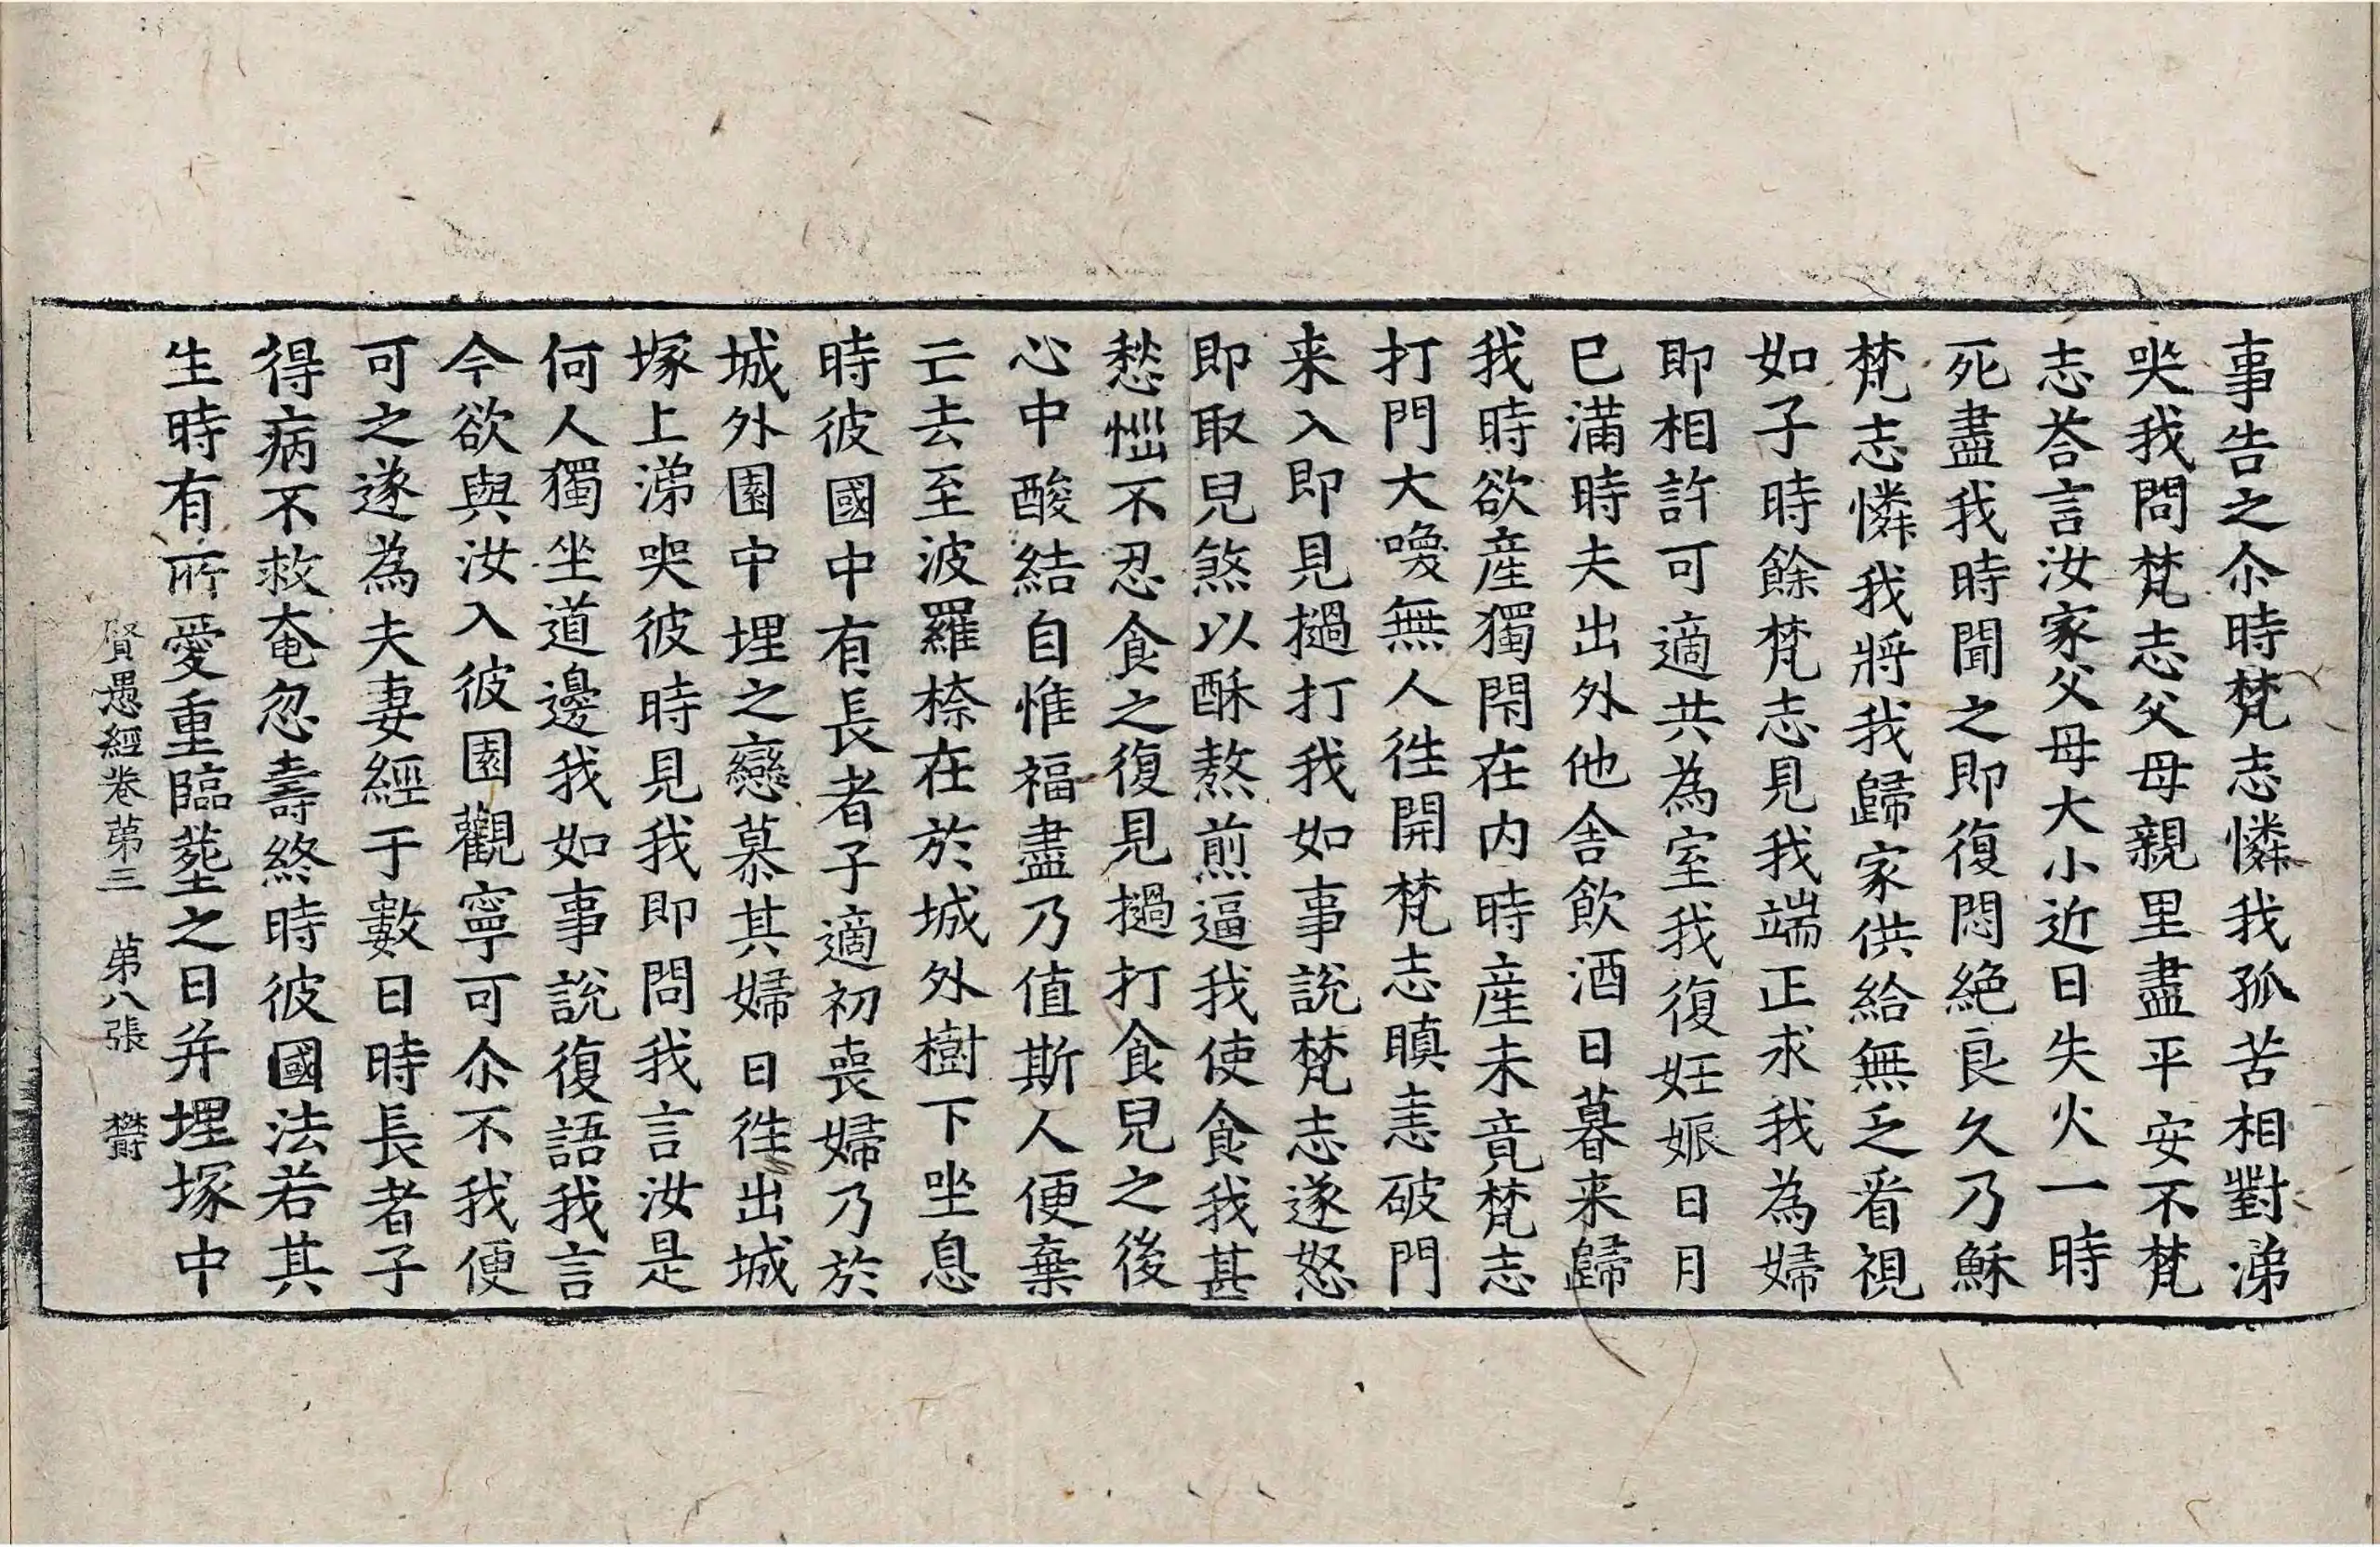 事告之尒時梵志憐我孤苦相對涕
哭我問梵志父母親里盡平安不梵
志荅言汝家父母大小近日失火一時
死盡我時聞之即復悶絕良久乃穌
梵志憐我將我歸家供給無乏看視
如子時餘梵志見我端正求我為婦
即相許可適共為室我復妊娠日月
已滿時夫出外他舍飲酒日暮来歸
我時欲産獨閇在内時産未竟梵志
打門大喚無人徃開梵志瞋恚破門
来入即見撾打我如事說梵志遂怒
即取兒煞以酥熬煎逼我使食我甚
愁惱不忍食之復見撾打食兒之後
心中酸結自惟福盡乃值斯人便棄
亡去至波羅㮈在於城外樹下坐息
時彼國中有長者子適初喪婦乃於
城外園中埋之戀慕其婦日徃出城
塚上涕哭彼時見我即問我言汝是
何人獨坐道邊我如事說復語我言
今欲與汝入彼園觀寧可尒不我便
可之遂為夫妻經于數日時長者子
得病不救奄忽壽終時彼國法若其
生時有所愛重臨塟之日并埋塚中
賢愚經卷苐三　苐八張　欝